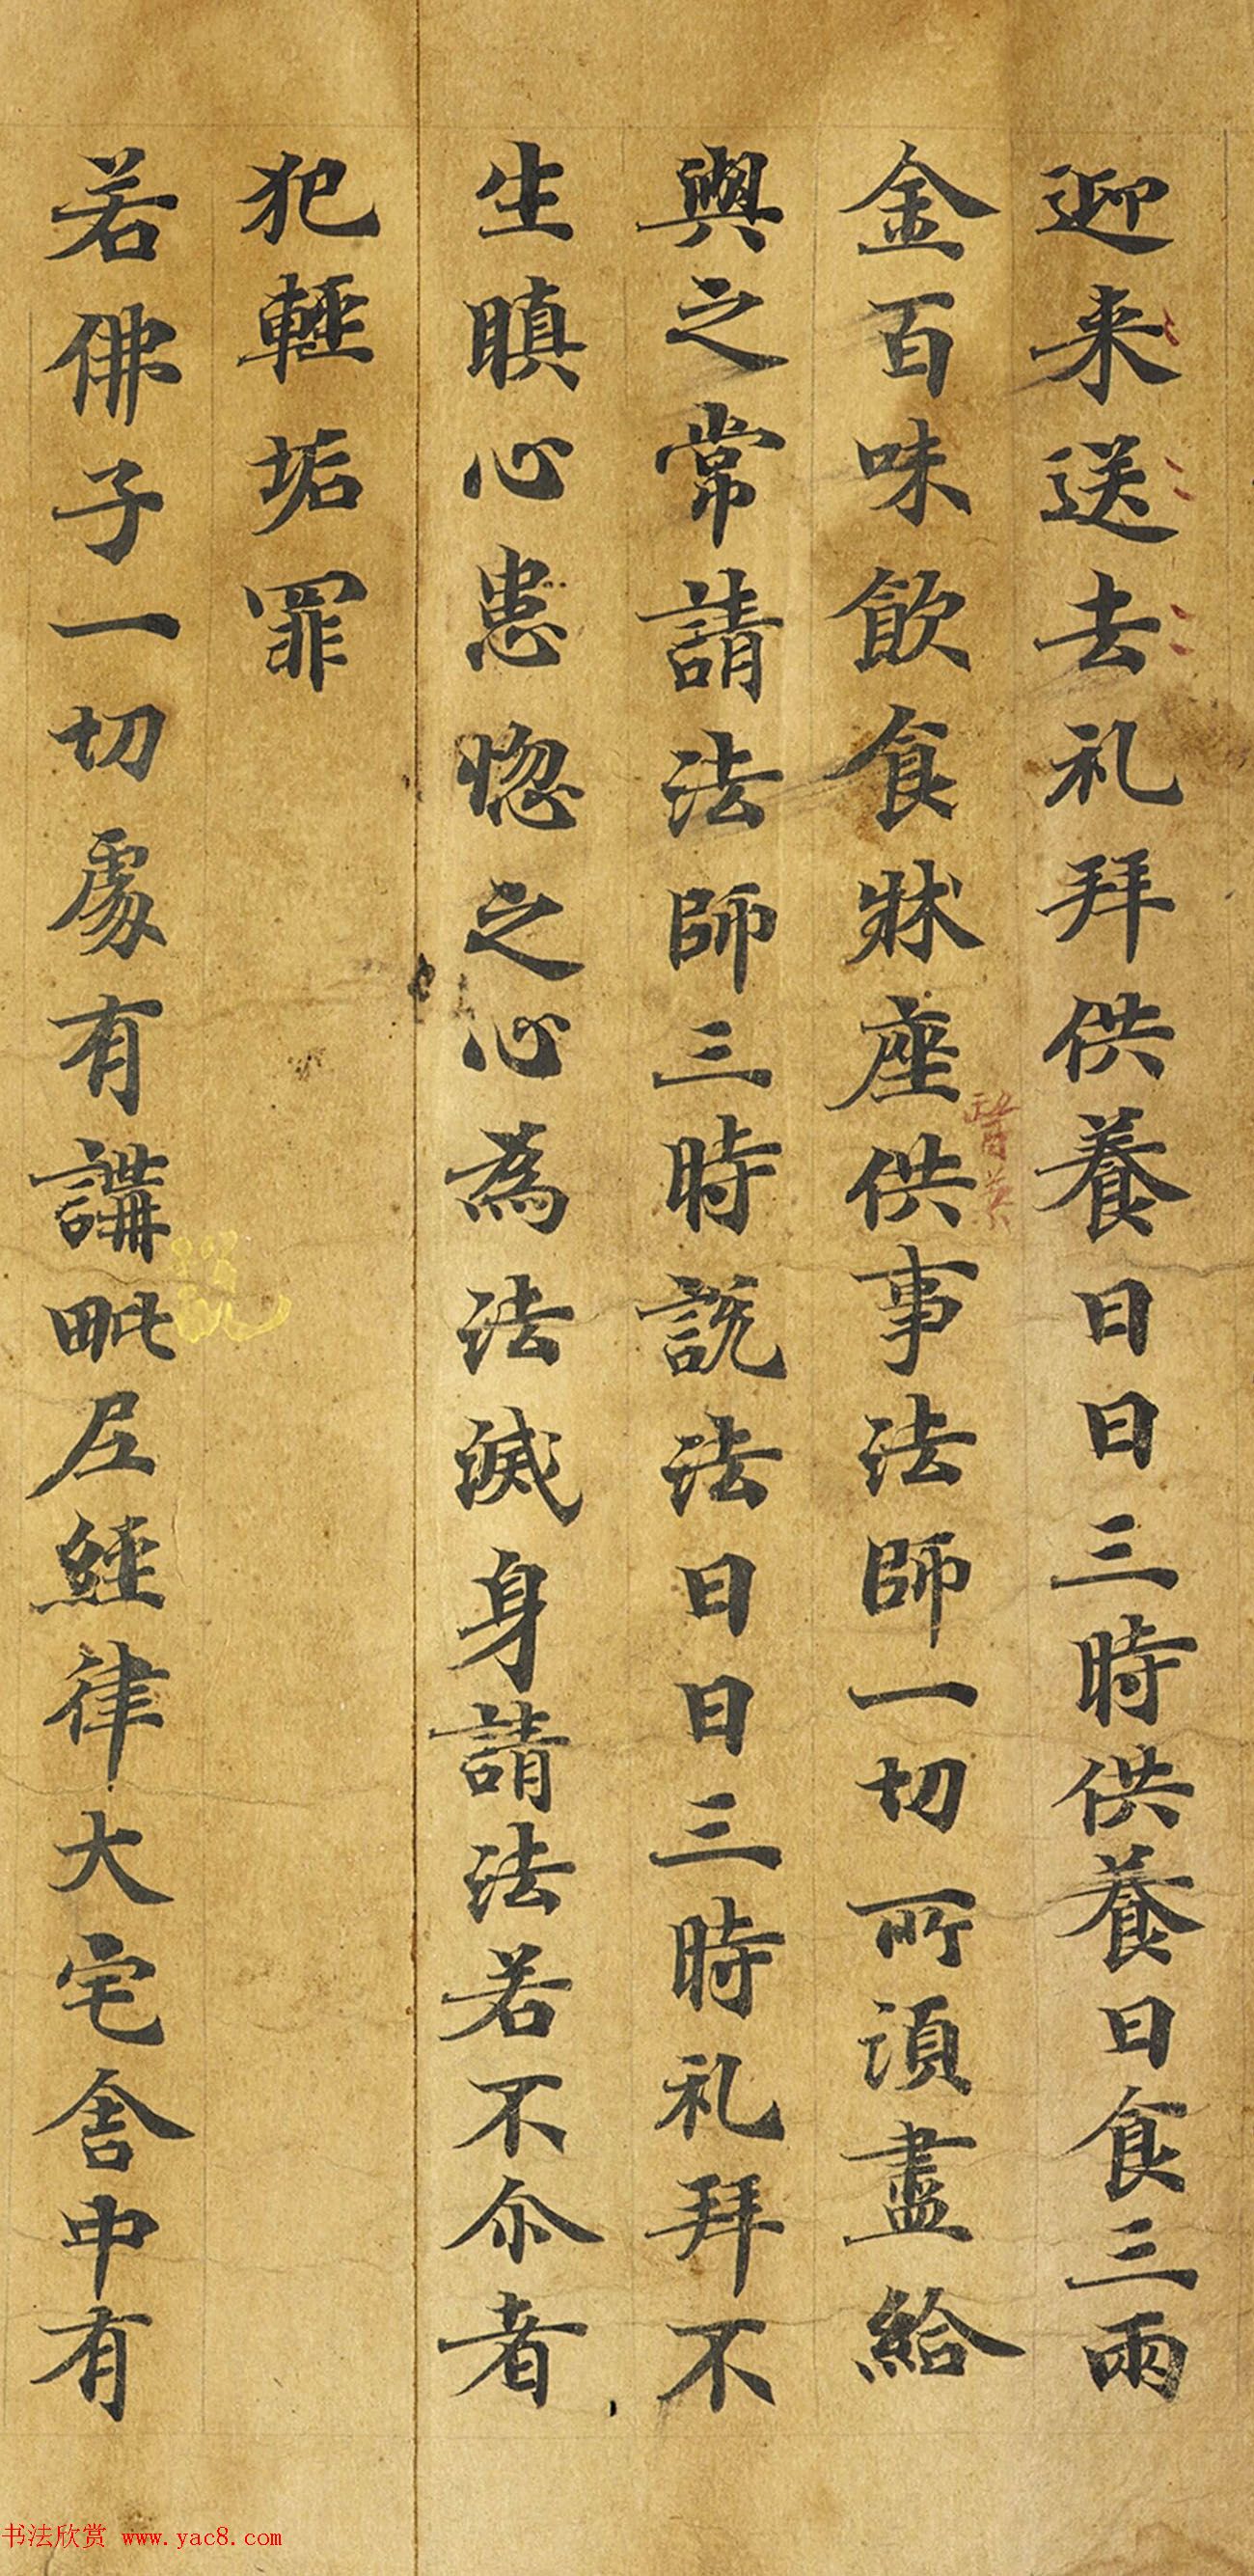 迎来送去礼拜供養日日三時供養日食三兩
金百味飲食牀座供事法師一切所須盡給
醫藥
與之常請法師三時説法日日三時礼拜不
生瞋心患惱之心為法滅身請法若不尒者
犯輕垢罪
若佛子一切處有講毗尼經律大宅舍中有
説
书法欣赏 www.yac8.com